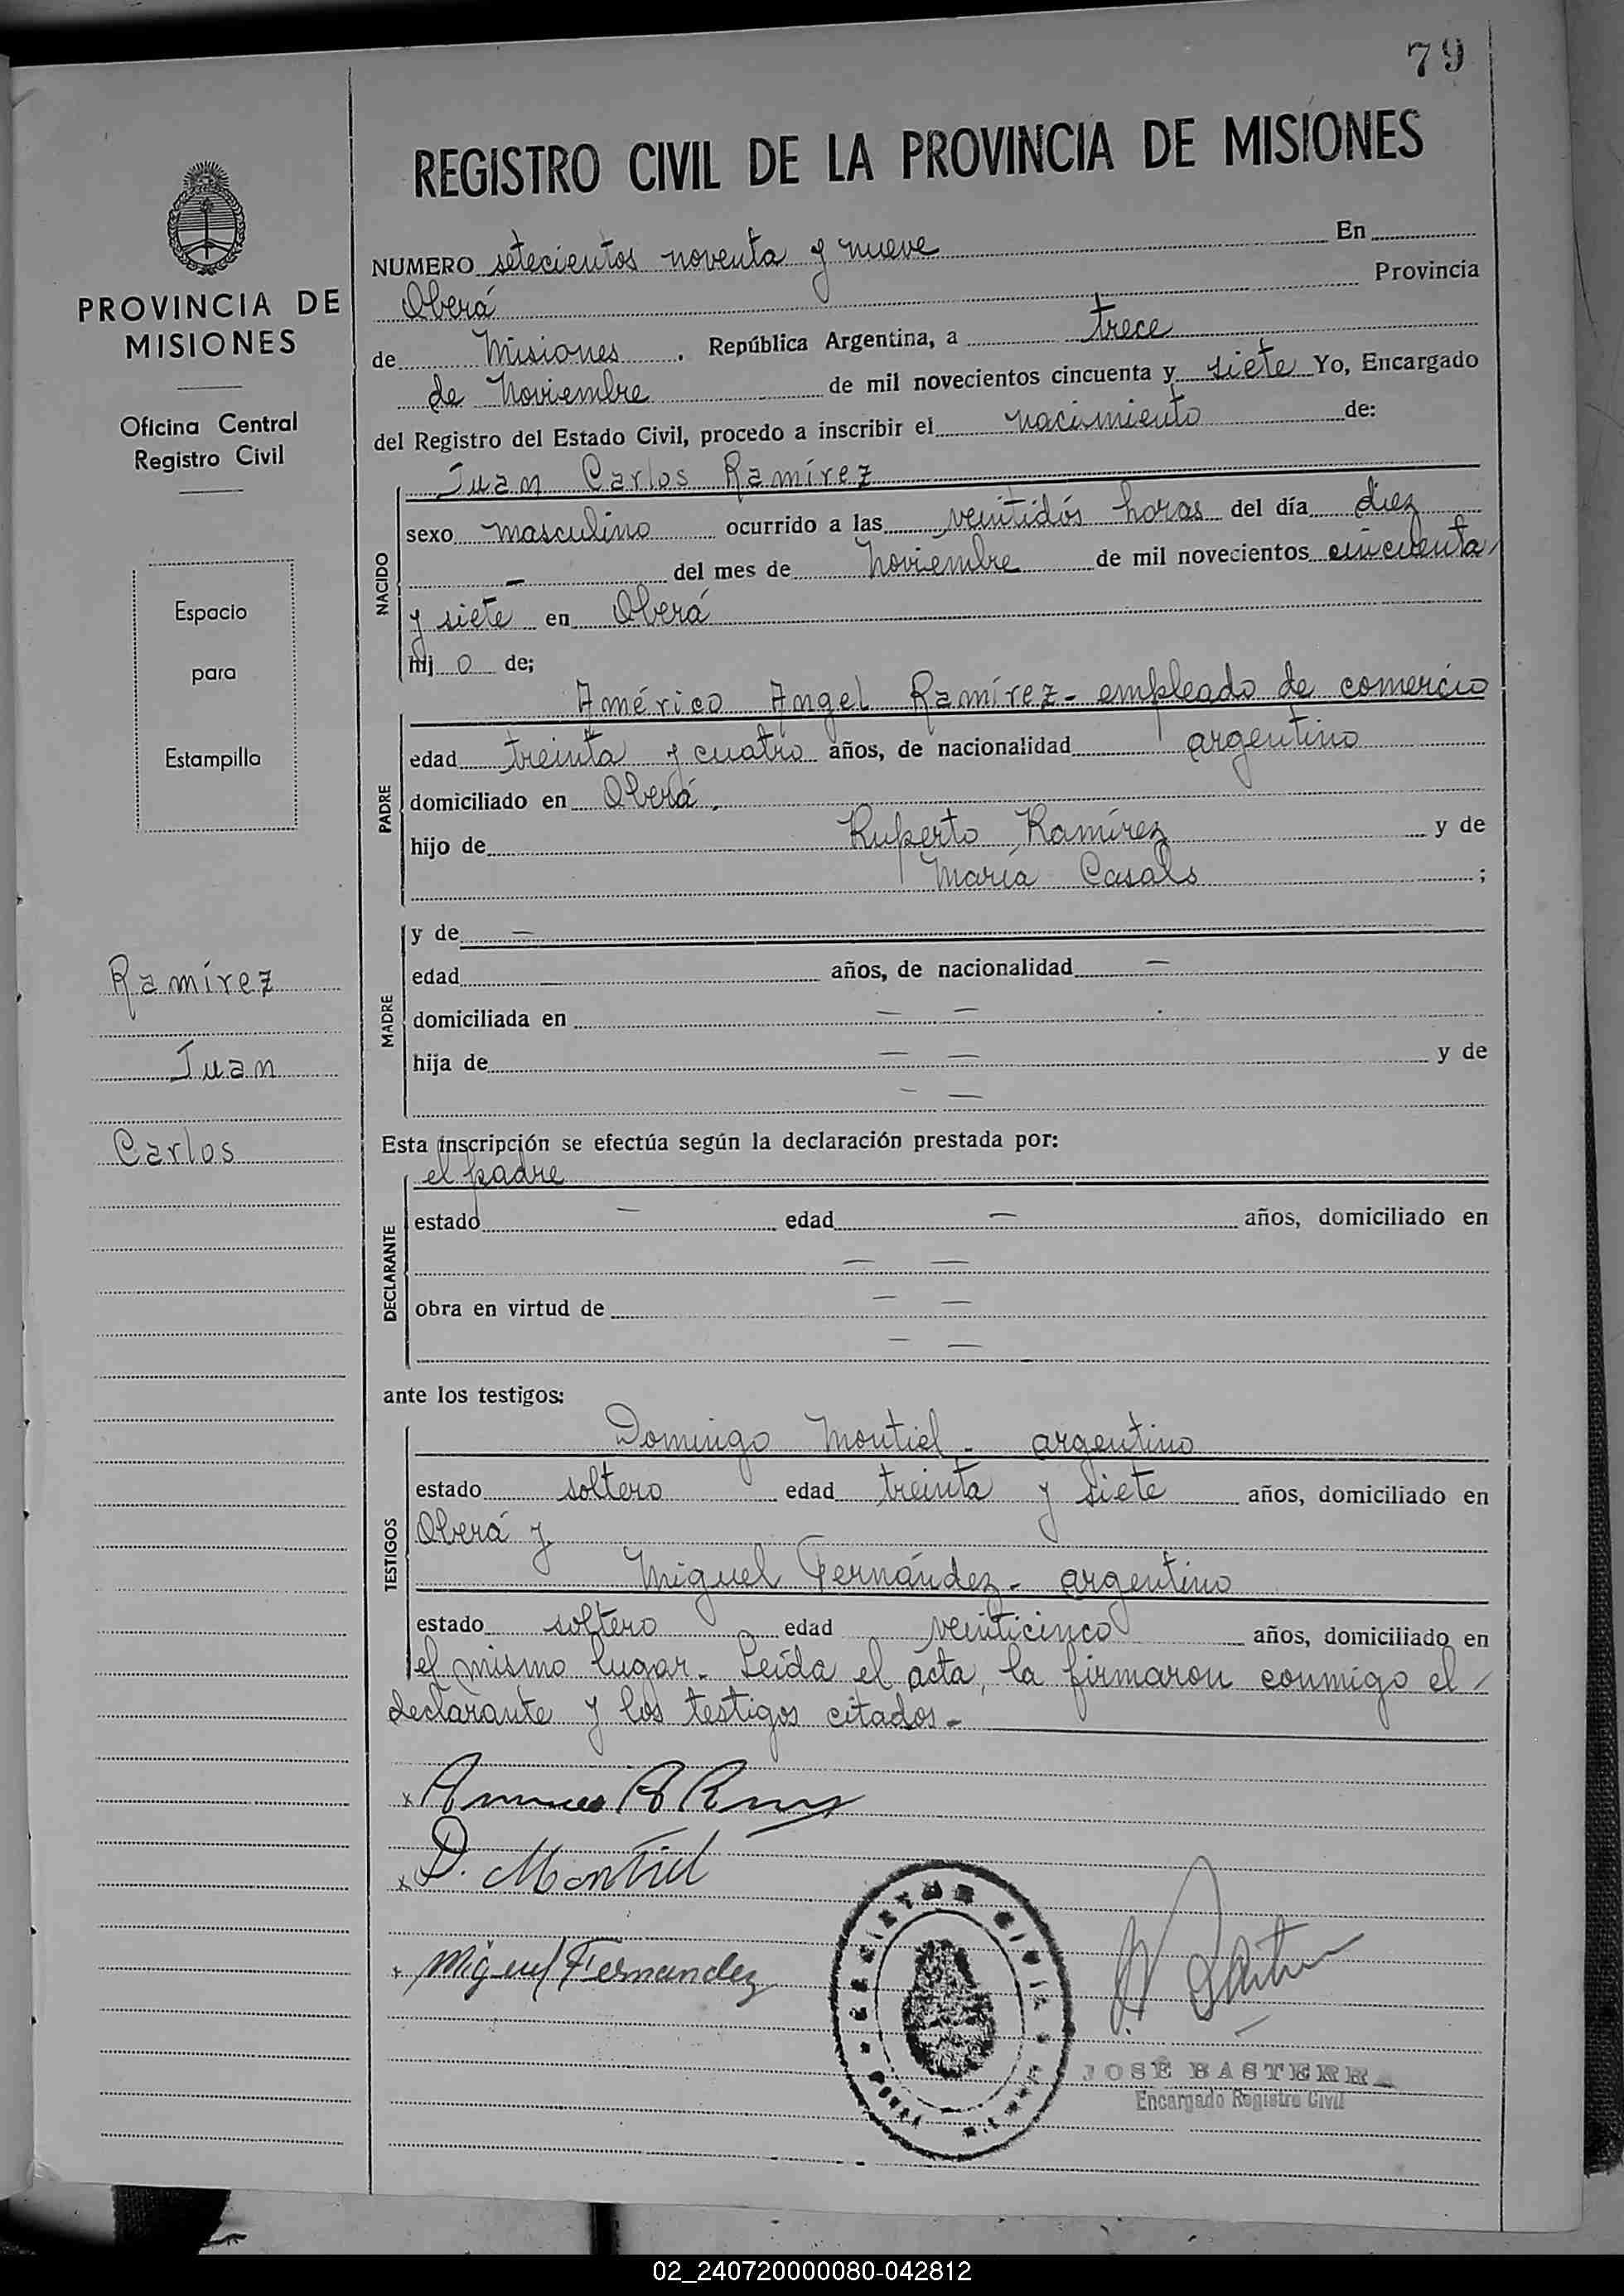 79
REGISTRO CIVIL DE LA PROVINCIA DE MISIONES
PROVINCIA DE
MISIONES
Oficina Central
Registro Civil
Espacio
para
Estampilla
Ramírez
Juan
Carlos
NUMERO setecientos noventa y nueve En
Oberá Provincia
de Misiones. República Argentina, a trece
de Noviembre de mil novecientos cincuenta y siete Yo, Encargado
del Registro del Estado Civil, procedo a inscribir el nacimiento de:
Juan Carlos Ramírez
NACIDO
sexo masculino ocurrido a las veintidós horas del día diez
— del mes de Noviembre de mil novecientos cincuenta
y siete en Oberá
hij o de;
Américo Angel Ramírez - empleado de comercio
PADRE
edad treinta y cuatro años, de nacionalidad argentino
domiciliado en Oberá.
hijo de Ruperto Ramírez y de
María Casals ;
MADRE
y de —
edad años, de nacionalidad —
domiciliada en — —
hija de — — y de
— —
Esta inscripción se efectúa según la declaración prestada por:
el padre
DECLARANTE
estado — edad — años, domiciliado en
— —
obra en virtud de — —
— —
ante los testigos:
TESTIGOS
Domingo Montiel - argentino
estado soltero edad treinta y siete años, domiciliado en
Oberá y
Miguel Fernández - argentino
estado soltero edad veinticinco años, domiciliado en
el mismo lugar. Leída el acta, la firmaron conmigo el
declarante y los testigos citados.-
D. Montiel
Miguel Fernandez
REGISTRO CIVIL
JOSÉ BASTERRA
Encargado Registro Civil
02_240720000080-042812